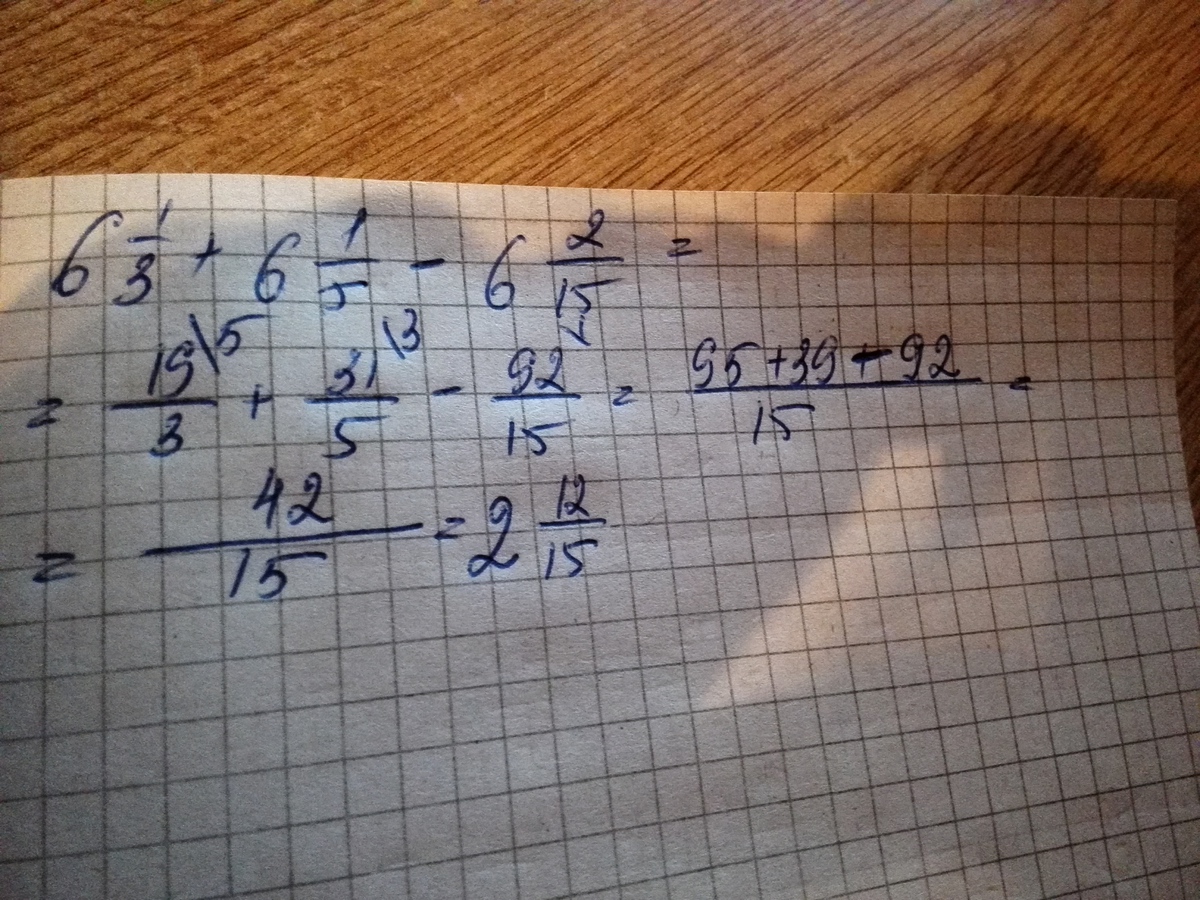 6 1/3 + 6 1/5 - 6 2/15 =
= 19\5/3 + 31\3/5 - 92/15 = 95+39-92/15 =
= 42/15 = 2 12/15